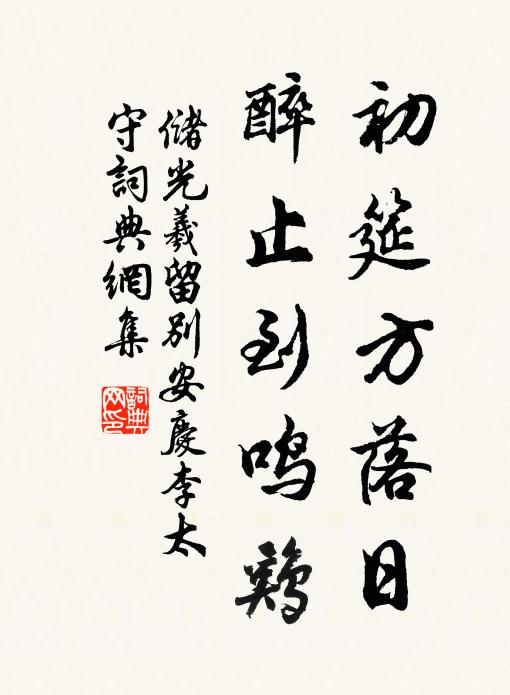 初筵方落日
醉止到鸣鷄
儲光羲留别安慶李太
守詞典網集
詞典网印